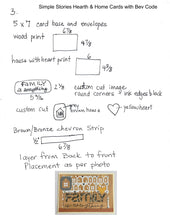 Simple Stories Hearth & Home Cards with Bev Code
3.
5 x 7 card base and envelopes
6 7/8
wood print
4 7/8
house with heart print
6
4 3/8
FAMILY
is everything
2 7/8
custom cut image
round corners & ink edges black
5 3/8
custom cut
brown house
yellow heart
Brown/Bronze chevron Strip
1/2"
6 7/8
layer from Back to front
Placement as per photo
FAMILY